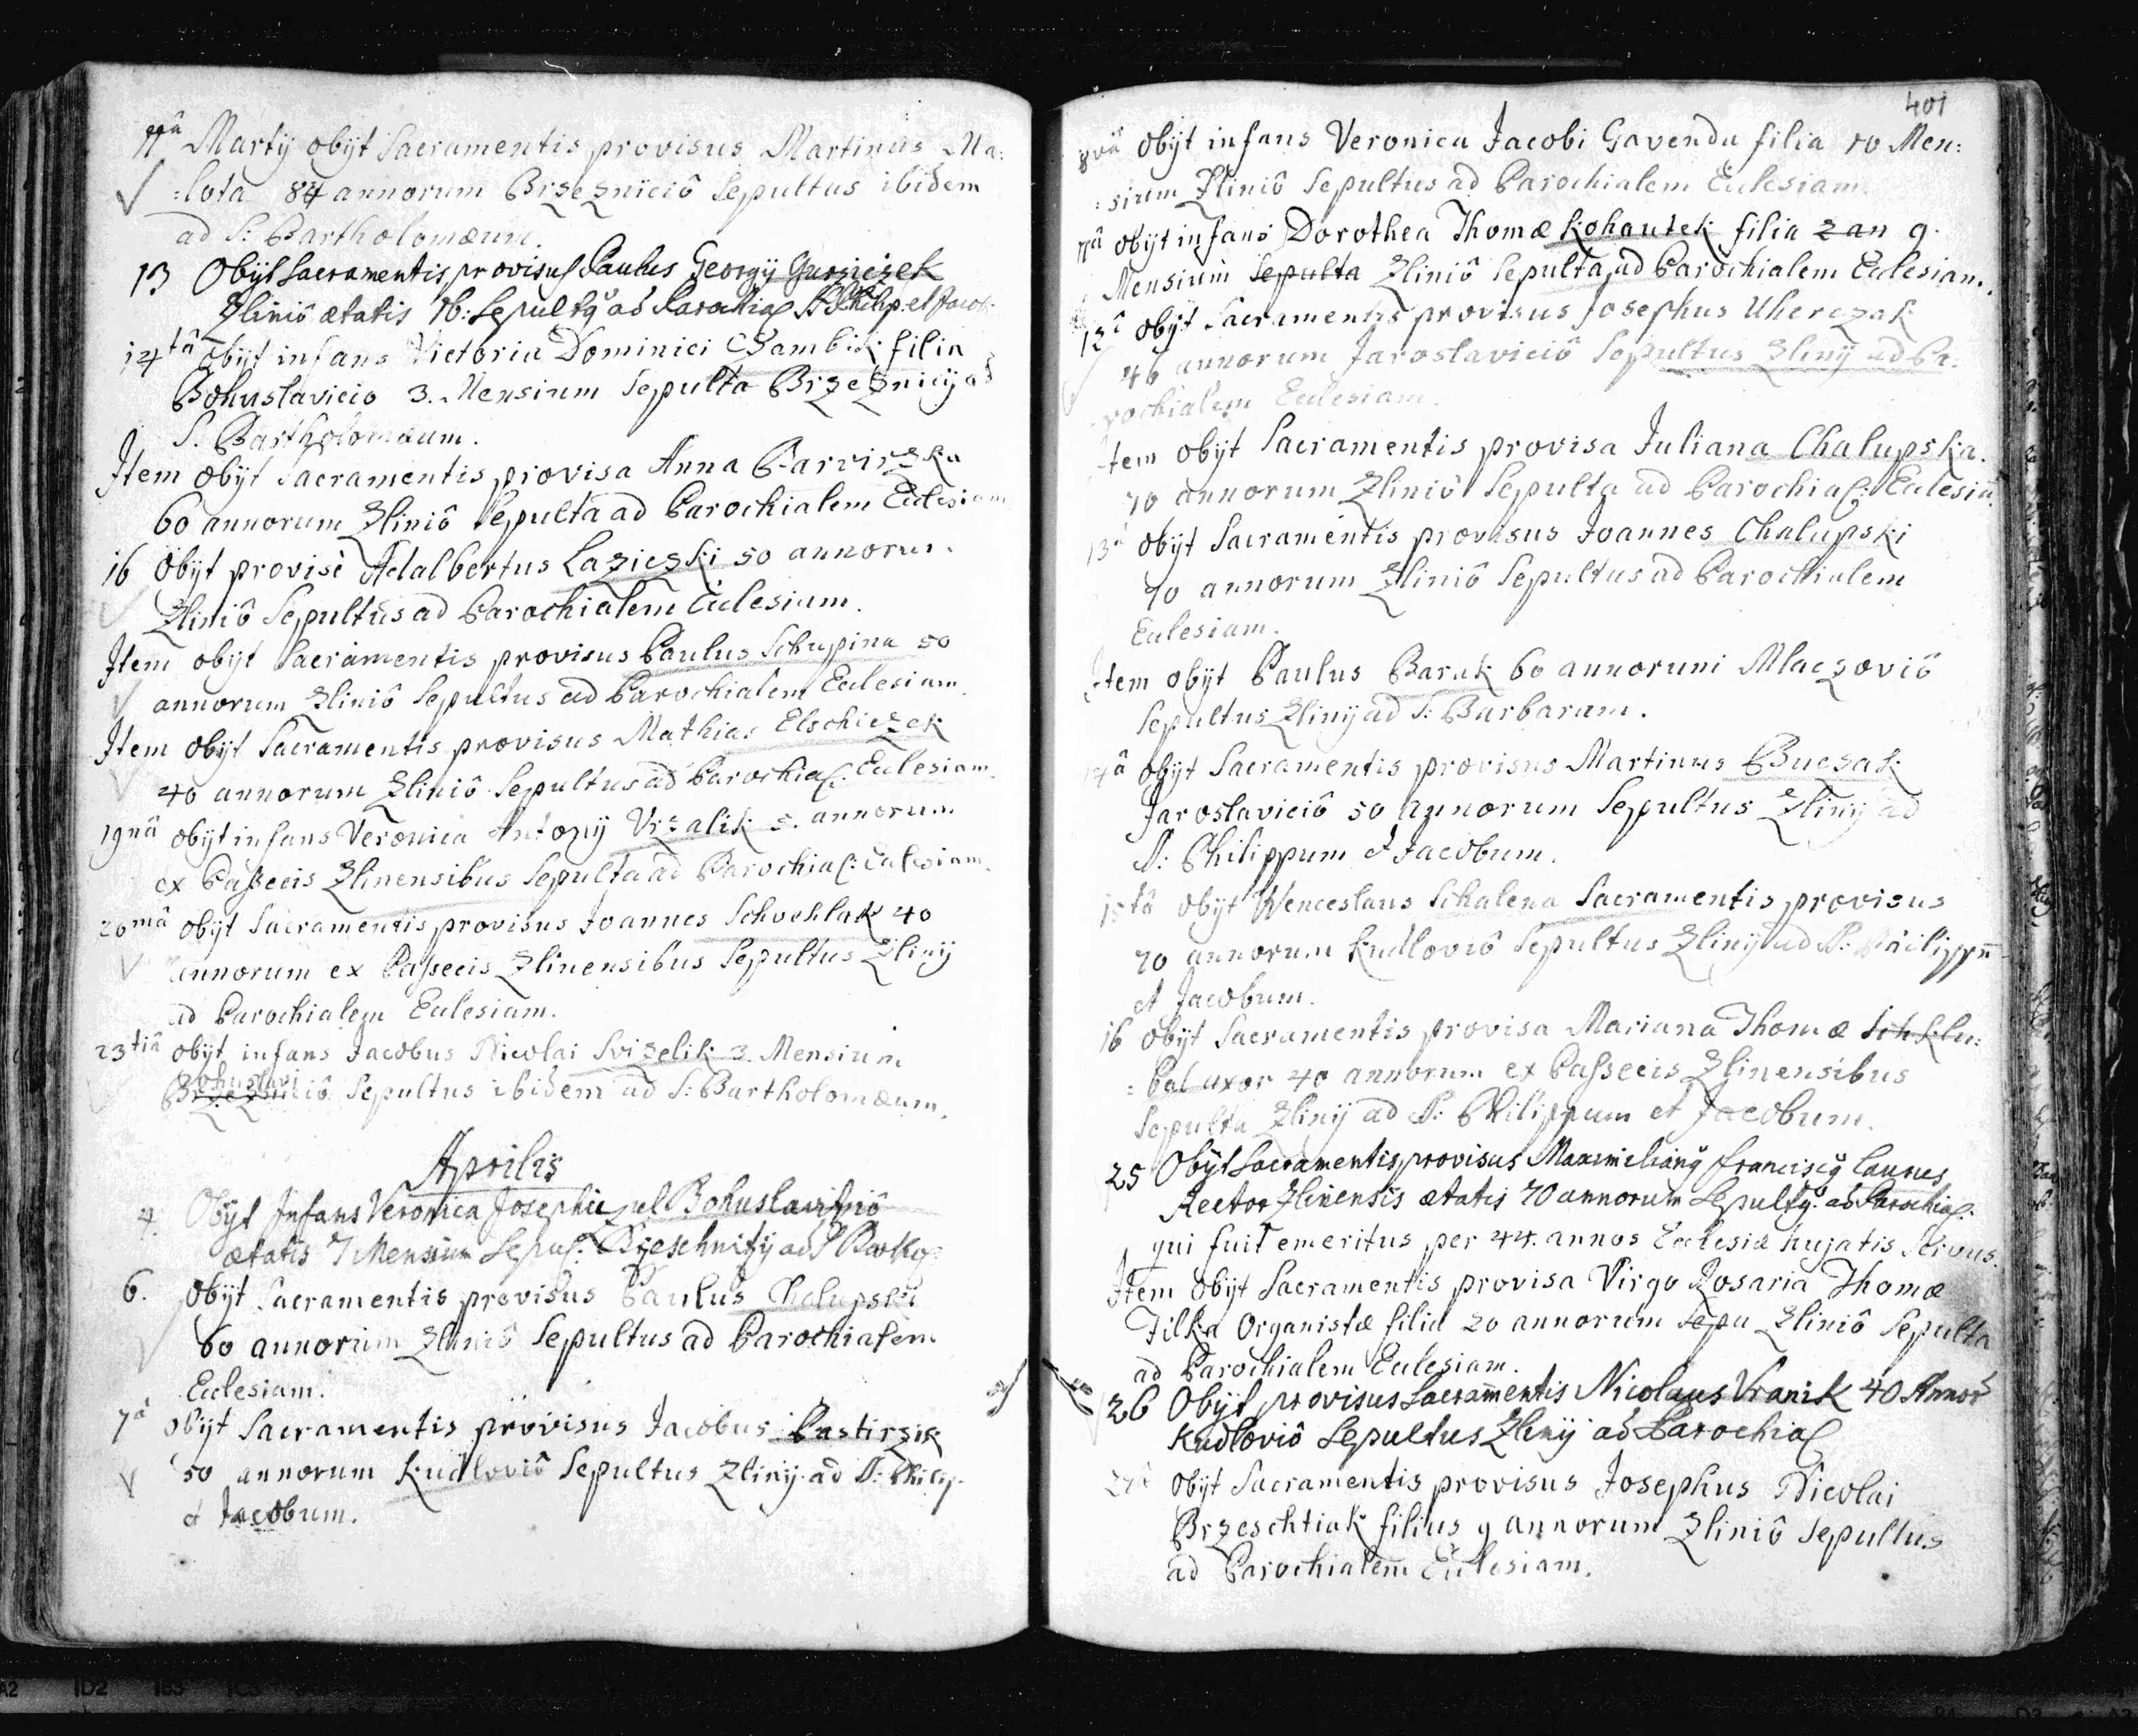 11â Martij obijt Sacramentis provisus Martinus Ma:
:lota 84 annorum Brzezniciô Sepultus ibidem
ad S: Bartholomæum.
13 Obijt Sacramentis provisus Paulus Georgij
Zliniô ætatis 16: Sepultq ad Parochial S Philip: et Jacob.
14tâ obijt infans Victoria Dominici Czambik filia
Bohuslavicio 3. Mensium Sepulta Brzeznicij ad
S. Bartholomæum.
Item obijt Sacramentis provisa Anna
60 annorum Zliniô Sepulta ad Parochialem Ecclesiam
16 Obijt provisè Adalbertus Laziczki 50 annorum.
Zliniô Sepultus ad Parochialem Ecclesiam.
Item obijt Sacramentis provisus Paulus Schupina 50
annorum Zliniô Sepultus ad Parochialem Ecclesiam.
Item obijt Sacramentis provisus Mathias Elschiczek
40 annorum Zliniô Sepultus ad Parochial: Ecclesiam.
19nâ obijt infans Veronica Antonij Vrzalik 5. annorum
ex Passecis Zlinensibus Sepulta ad Parochial: Ecclesiam.
20mâ obijt Sacramentis provisus Joannes 40
annorum ex Passecis Zlinensibus Sepultus Zlinij
ad Parochialem Ecclesiam.
23tiâ obijt infans Jacobus Nicolai Svizelik 3. Mensium
Bohuslavi
Brzezniciô Sepultus ibidem ad S: Bartholomæum.
Aprilis
4. Obijt Infans Veronica
ætatis 7 Mensium Sepul: ad S
6. Obijt Sacramentis provisus Paulus Chalupski
60 annorum Zliniô Sepultus ad Parochialem
Ecclesiam.
7â Obijt Sacramentis provisus Jacobus Pastirzik
50 annorum Kudloviô Sepultus Zlinij ad S: Philip.
et Jacobum.
401
8vâ Obijt infans Veronica Jacobi Gavenda filia 10 Men:
:sium Zliniô Sepultus ad Parochialem Ecclesiam
11â obijt infans Dorothea Thomæ Kohautek filia 2 an 9.
Mensium Sepulta Zliniô Sepulta ad Parochialem Ecclesiam.
12â obijt Sacramentis provisus Josephus Uherczak
46 annorum Jaroslaviciô Sepultus Zlinij ad Pa:
rochialem Ecclesiam.
Item obijt Sacramentis provisa Juliana Chalupska.
70 annorum Zliniô Sepulta ad Parochial: Ecclesiã.
13â obijt Sacramentis provisus Joannes Chalupski
70 annorum Zliniô Sepultus ad Parochialem
Ecclesiam.
Item obijt Paulus Baruk 60 annorum Mlaczoviô
Sepultus Zlinij ad S: Barbaram.
14â obijt Sacramentis provisus Martinus Buczak
Jaroslaviciô 50 annorum Sepultus Zlinij ad
S: Philippum et Jacobum.
15tâ obijt Wenceslaus Schalena Sacramentis provisus
70 annorum Kudloviô Sepultus Zlinij ad S: Philippũ
et Jacobum.
16 Obijt Sacramentis provisa Mariana Thomæ Schklu:
:bal uxor 40 annorum ex Passecis Zlinensibus
Sepulta Zlinij ad S: Philippum et Jacobum.
25 Obijt Sacramentis provisus Maximilianq Franciscq Caurus
Rector Zlinensis ætatis 70 annorum Sepultq. ad Parochial:
qui fuit emeritus per 44. annos Ecclesiæ hujatis Servus.
Item obijt Sacramentis provisa Virgo Rosaria Thomæ
Filka Organistæ filia 20 annorum Sepu Zliniô Sepulta
ad Parochialem Ecclesiam.
26 Obijt provisus Sacramentis Nicolaus Vranik 40 Annor
Kudloviô Sepultus Zlinij ad Parochial
obijt Sacramentis provisus Josephus Nicolai
Brzeschtiak filius 9 annorum Zliniô Sepultus
ad Parochialem Ecclesiam.